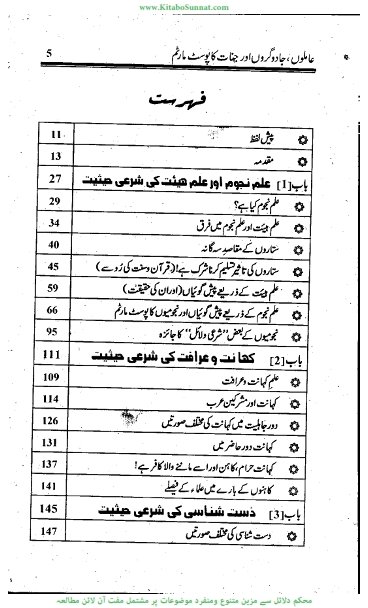 www.KitaboSunnat.com
عاملوں، جادوگروں اور جنات کا پوسٹ مارٹم 5
فہرست
پیش لفظ 11
مقدمہ 13
باب [1] علم نجوم اور علم هیئت کی شرعی حیثیت 27
علم نجوم کیا ہے؟ 29
علم ہیئت اور علم نجوم میں فرق 34
ستاروں کے مقاصد سہ گانہ 40
ستاروں کی تاثیر تسلیم کرنا شرک ہے! (قرآن وسنت کی رُو سے) 45
علم ہیئت کے ذریعے پیش گوئیاں (اور ان کی حقیقت) 59
علم نجوم کے ذریعے پیش گوئیاں اور نجومیوں کا پوسٹ مارٹم 66
نجومیوں کے بعض "شرعی دلائل" کا جائزہ 95
باب [2] کهانت و عرافت کی شرعی حیثیت 111
علم کہانت و عرافت 109
کہانت اور مشرکین عرب 114
دور جاہلیت میں کہانت کی مختلف صورتیں 126
کہانت دور حاضر میں 131
کہانت حرام، کاہن اور اسے ماننے والا کافر ہے! 137
کاہنوں کے بارے میں علماء کے فیصلے 141
باب [3] دست شناسی کی شرعی حیثیت 145
دست شناسی کی مختلف صورتیں 147
محکم دلائل سے مزین متنوع ومنفرد موضوعات پر مشتمل مفت آن لائن مطالعہ